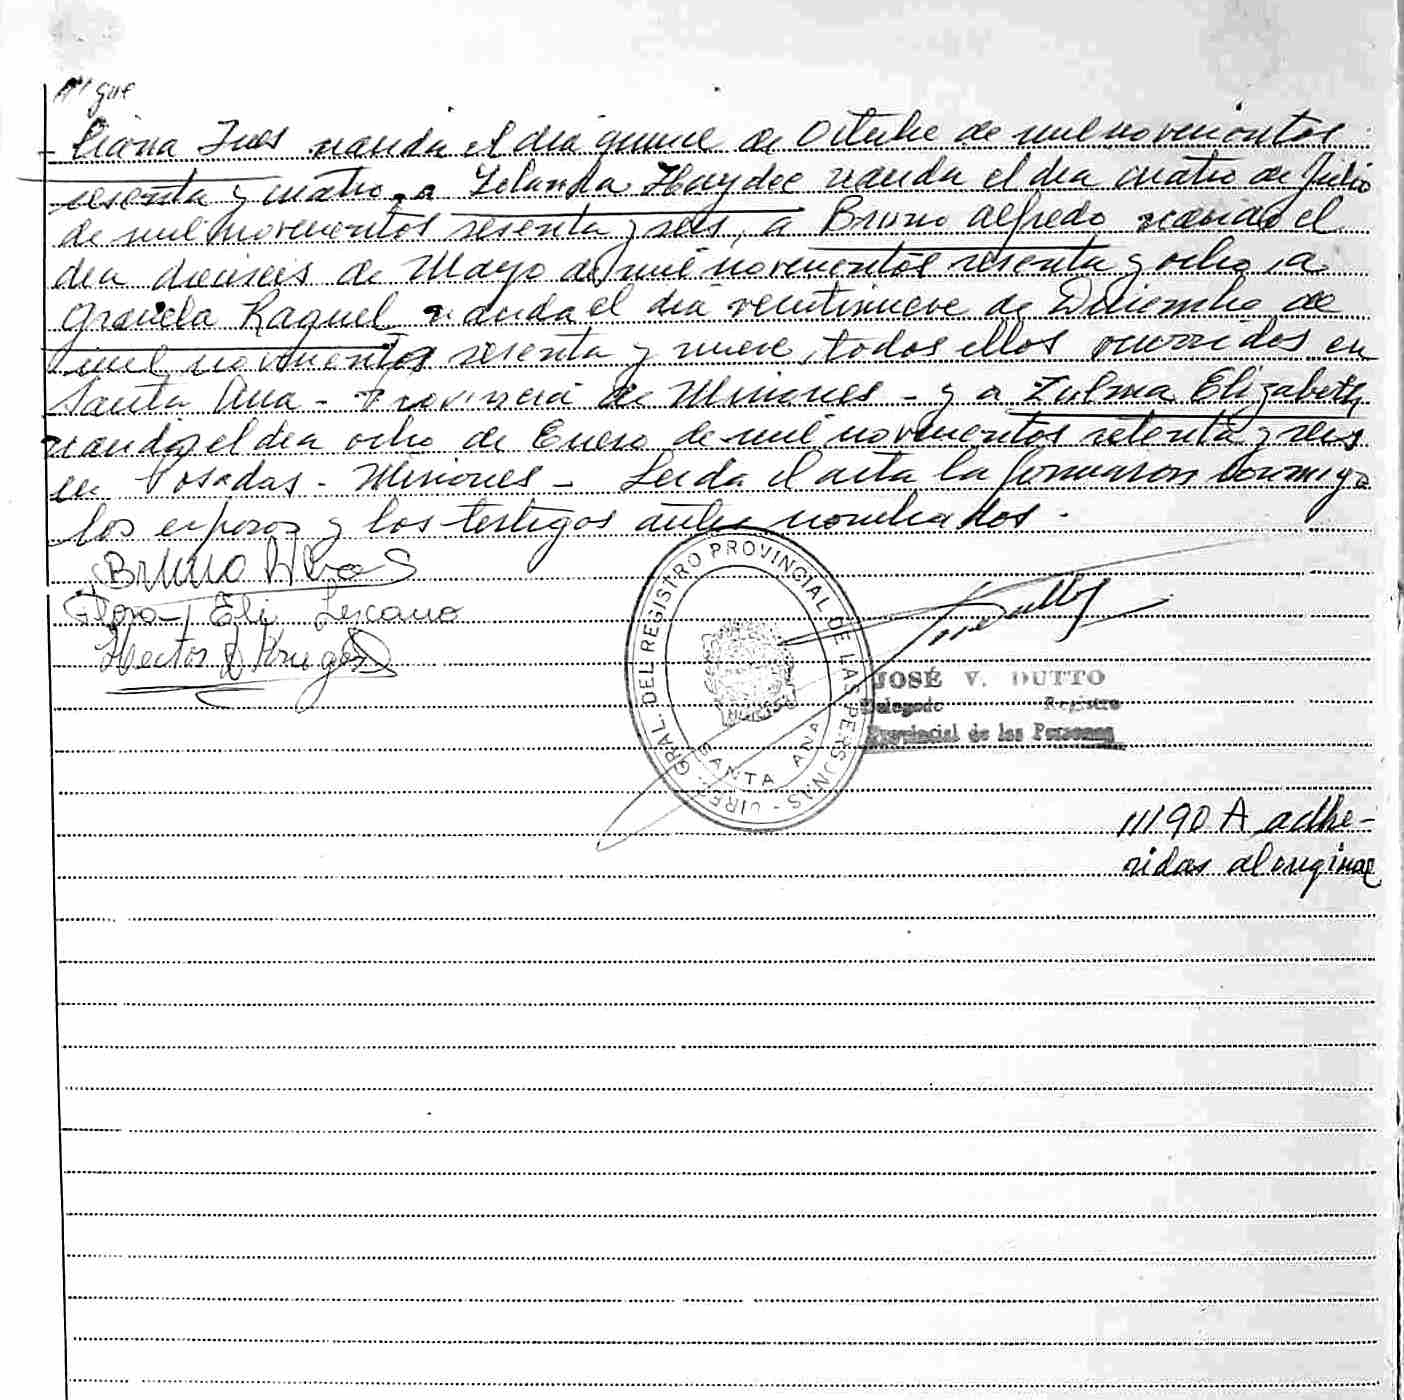 que
liana Ines nacida el día quince de Octubre de mil novecientos
sesenta y cuatro, a Yolanda Haydee nacida el día cuatro de Julio
de mil novecientos sesenta y seis, a Bruno Alfredo nacido el
día dieciseis de Mayo de mil novecientos sesenta y ocho, a
Graciela Raquel nacida el día veintinueve de Diciembre de
mil novecientos sesenta y nueve, todos ellos ocurridos en
Santa Ana - Provincia de Misiones - y a Zulma Elizabeth
nacida el día ocho de Enero de mil novecientos setenta y seis
en Posadas - Misiones - Leida el acta la firmaron conmigo
los esposos y los testigos antes nombrados.
Bruno Rivas
Flora Eli Lezcano
Hector R Kruger
DIREC. GRAL. DEL REGISTRO PROVINCIAL DE LAS PERSONAS -
SANTA ANA
JOSÉ V. DUTTO
Delegado Registro
Provincial de las Personas
11190 A adhe-
ridas al original